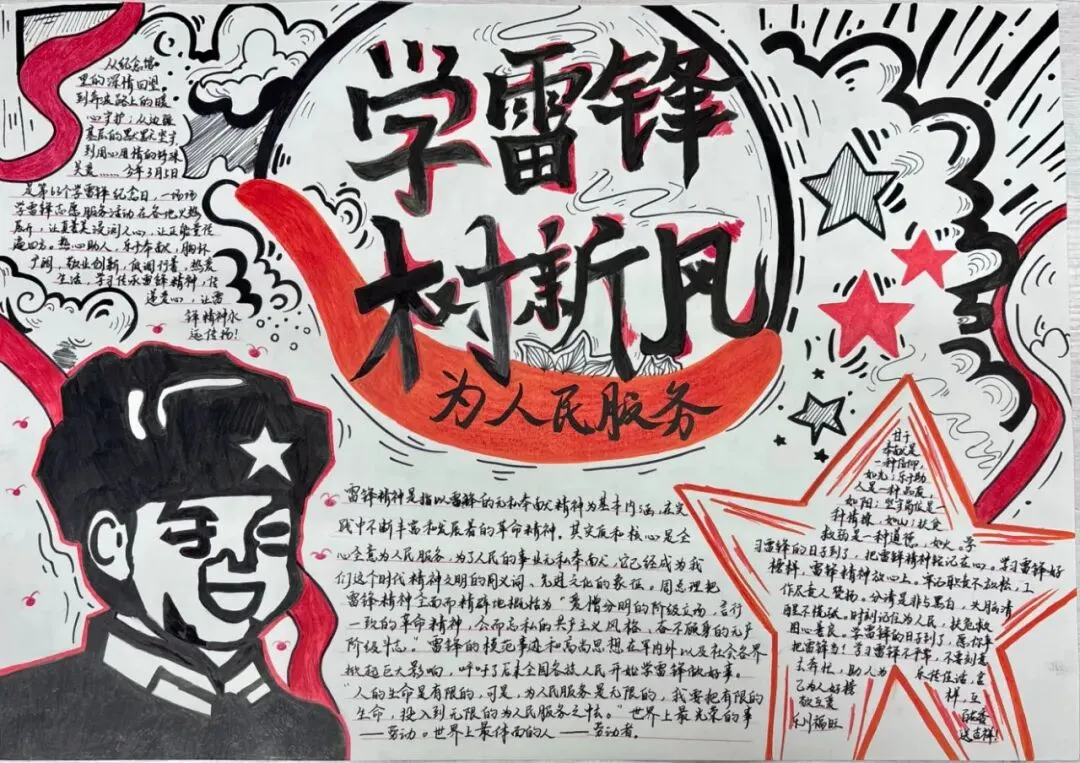 学雷锋
树新风
为人民服务
从纪念馆
里的深情回望
到奔波路上的暖
心守护；从边疆
基层的默默坚守
到用心用情的特殊
关爱……今年3月5日
是第63个学雷锋纪念日，一场场
学雷锋志愿服务活动在各地火热
展开，让真善美浸润人心，让正能量传
遍四方。热心助人，乐于奉献，胸怀
广阔，敬业创新，低调行善，热爱
生活，学习传承雷锋精神，传
递爱心，让雷
锋精神永
远传扬！
雷锋精神是指以雷锋的无私奉献精神为基本内涵，在实
践中不断丰富和发展着的革命精神，其实质和核心是全
心全意为人民服务，为了人民的事业无私奉献，它已经成为我
们这个时代精神文明的同义词、先进文化的表征。周总理把
雷锋精神全面而精辟地概括为“爱憎分明的阶级立场、言行
一致的革命精神，公而忘私的共产主义风格，奋不顾身的无产
阶级斗志。雷锋的模范事迹和高尚思想在军内外以及社会各界
掀起巨大影响，呼吁了后来全国各族人民开始学雷锋做好事。
“人的生命是有限的，可是，为人民服务是无限的，我要把有限的
生命，投入到无限的为人民服务之中去。”世界上最光荣的事
——劳动。世界上最体面的人——劳动者。
甘于
奉献是
一种信仰，
如光；乐于助
人是一种品质，
如阳；坚守岗位是一
种情操，如山；扶危
救弱是一种道德，如火。学
习雷锋的日子到了，把雷锋精神轻记在心。学习雷锋好
榜样，雷锋精神放心上。牢记职责不放松，工
作尽责人赞扬。分清是非与黑白，头脑清
醒不慌张。时刻记住为人民，扶危救
困心善良。学雷锋的日子到了，愿你争
把雷锋当！学习雷锋不平常，不要刻意
去奔忙，助人为乐传佳话，宣
己为人好榜样，互
敬互爱
百花香
乐川福旺
送吉祥！